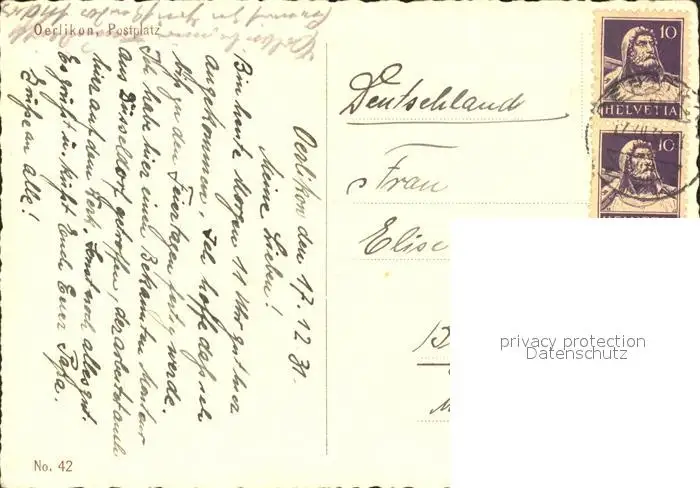 Oerlikon, Postplatz
Oerlikon den 17.12.31.
Meine Lieben!
Bin heute Morgen 11 Uhr gut hier
angekommen. Ich hoffe daß ich
bis zu den Feiertagen fertig werde.
Ich habe hier einen Bekannten Monteur
aus Düsseldorf getroffen, der arbeitet auch
hier auf dem Werk. Sonst noch alles gut.
Es grüßt u. küßt Euch Euer Papa.
Grüße an alle!
No. 42
Deutschland
Frau
Elise
10
HELVETIA
10
privacy protection
Datenschutz